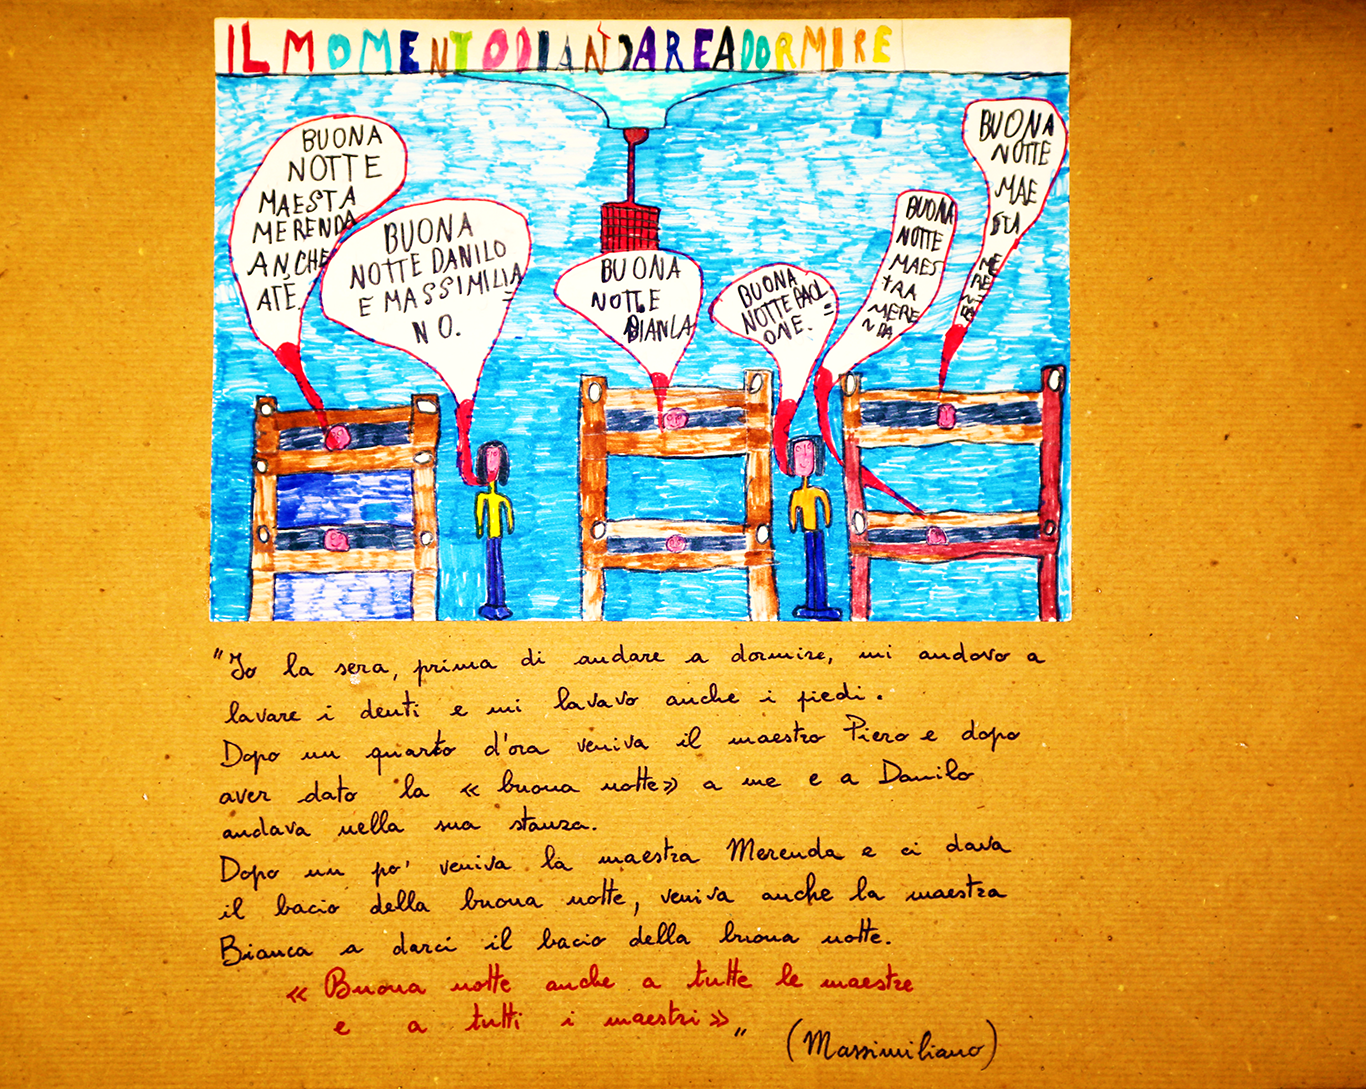 IL MOMENTO DI ANDARE A DORMIRE
BUONA
NOTTE
MAESTA
MERENDA
ANCHE
ATÈ.
BUONA
NOTTE DANILO
E MASSIMILIA=
NO.
BUONA
NOTTE
BIANCA
BUONA
NOTTE PAOL=
ONE.
BUONA
NOTTE
MAES
TRA
MERE
NDA
BUONA
NOTTE
MAE
STA
ME
RE
N
DA
"Io la sera, prima di andare a dormire, mi andavo a
lavare i denti e mi lavavo anche i piedi.
Dopo un quarto d'ora veniva il maestro Piero e dopo
aver dato la «buona notte» a me e a Danilo
andava nella sua stanza.
Dopo un po' veniva la maestra Merenda e ci dava
il bacio della buona notte, veniva anche la maestra
Bianca a darci il bacio della buona notte.
«Buona notte anche a tutte le maestre
e a tutti i maestri»"
(Massimiliano)